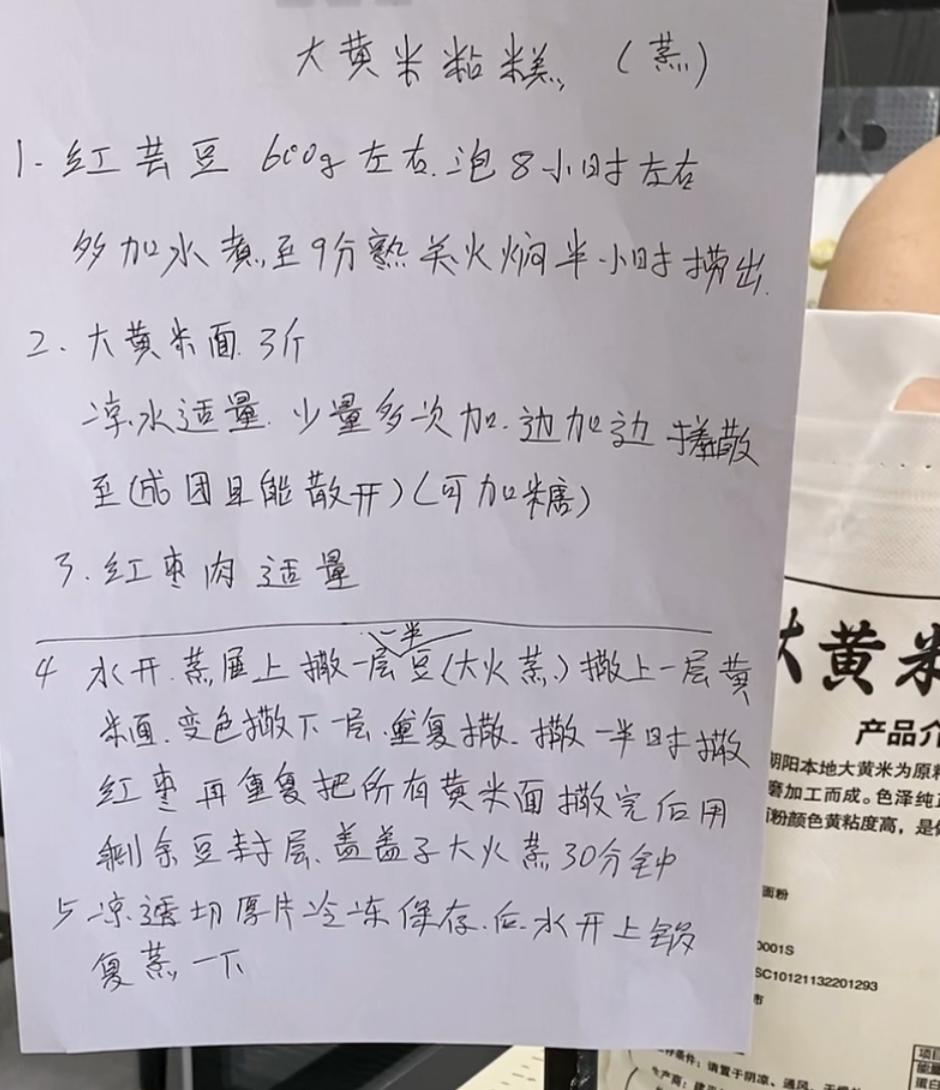 大黄米粘糕 (蒸)
1. 红芸豆 600g左右.泡8小时左右
多加水煮至9分熟关火焖半小时捞出.
2、大黄米面 3斤
凉水适量.少量多次加.边加边搓散
至(成团且能散开)(可加糖)
3.红枣肉适量
一半
4 水开.蒸屉上撒一层豆(大火蒸)撒上一层黄
米面.变色撒下一层.重复撒.撒一半时撒
红枣 再重复把所有黄米面撒完后用
剩余豆封层、盖盖子大火蒸30分钟
5 凉透切厚片冷冻保存.后.水开上锅
复蒸一下
大黄米
产品介
朝阳本地大黄米为原料
磨加工而成。色泽纯正
粉颜色黄粘度高，是
面粉
0001S
SC10121132201293
市
条件：请置于阴凉、通风、干
产商：建
项目
能量